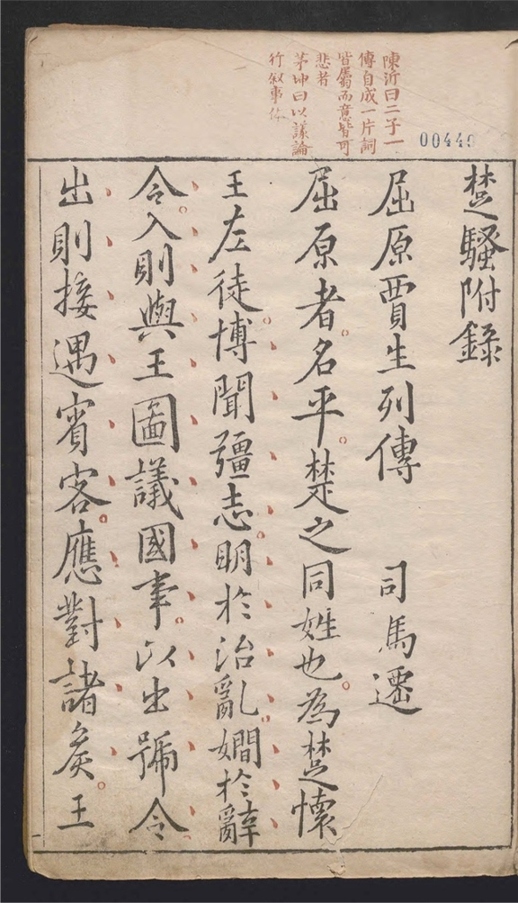 陳沂曰二子一
傳自成一片詞
皆屬而意皆可
悲者
茅坤曰以議論
行敘事体
00449
楚騷附錄
屈原賈生列傳 司馬遷
屈原者名平楚之同姓也為楚懷
王左徒博聞彊志明於治亂嫺於辭
令入則與王圖議國事以出號令
出則接遇賓客應對諸矦王